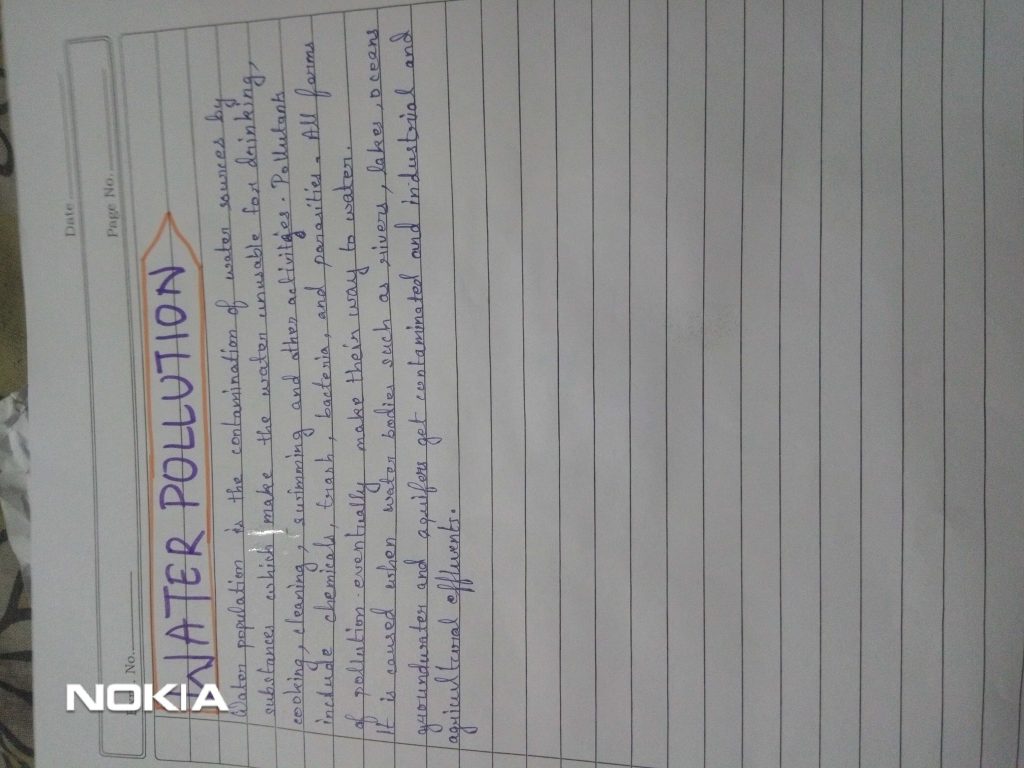 Date
Page No.
No.
WATER POLLUTION
Water population is the contamination of water sources by
substances which make the water unusable for drinking,
cooking, cleaning, swimming and other activities. Pollutants
include chemicals, trash, bacteria, and parasities. All forms
of pollution eventually make their way to water.
It is caused when water bodies such as rivers, lakes, oceans
groundwater and aquifers get contaminated and industrial and
agricultural effluents.
NOKIA